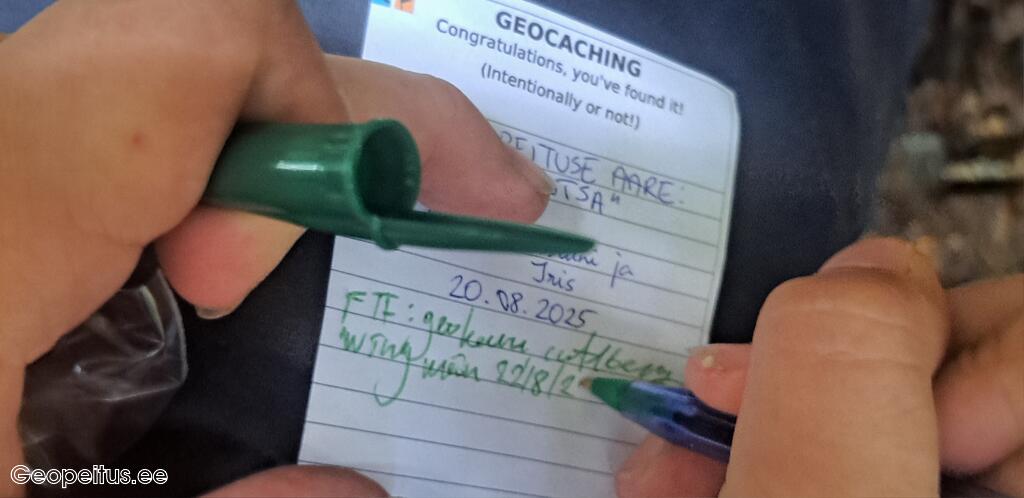 GEOCACHING
Congratulations, you've found it!
(Intentionally or not!)
AARE:
ja
Iris
20.08.2025
FTF: geokaru
Wingman 22/8/2
Geopeitus.ee